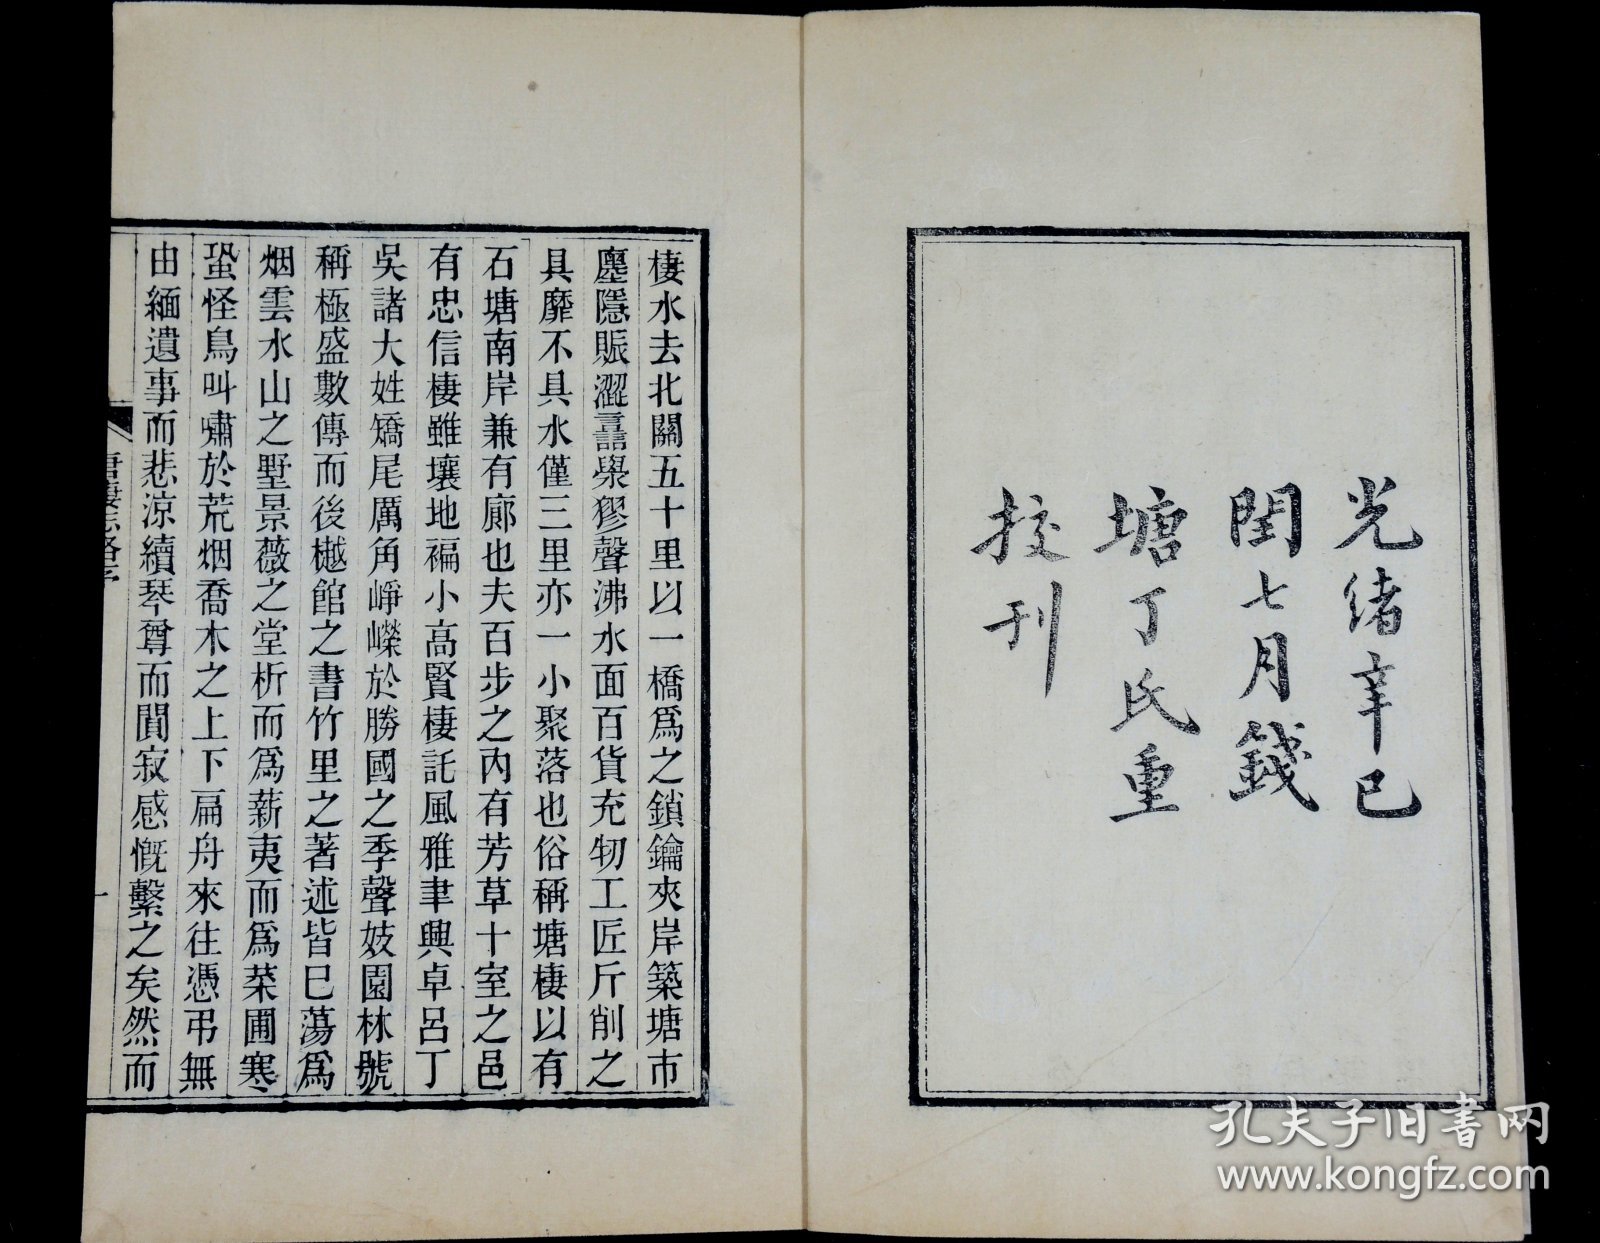 光緒辛巳
閏七月錢
塘丁氏重
挍刊
棲水去北關五十里以一橋爲之鎖鑰夾岸築塘市
廛隱賑澀譶㠌㺒聲沸水面百貨充牣工匠斤削之
具靡不具水僅三里亦一小聚落也俗稱塘棲以有
石塘南岸兼有廊也夫百步之內有芳草十室之邑
有忠信棲雖壤地褊小高賢棲託風雅聿興卓呂丁
吳諸大姓矯尾厲角崢嶸於勝國之季聲妓園林號
稱極盛數傳而後樾館之書竹里之著述皆巳蕩爲
烟雲水山之墅景薇之堂析而爲薪夷而爲菜圃寒
蛩怪鳥叫嘯於荒烟喬木之上下扁舟來往憑弔無
由緬遺事而悲涼續琴尊而闃寂感慨繫之矣然而
唐棲志略序
一
孔夫子旧書网
www.kongfz.com